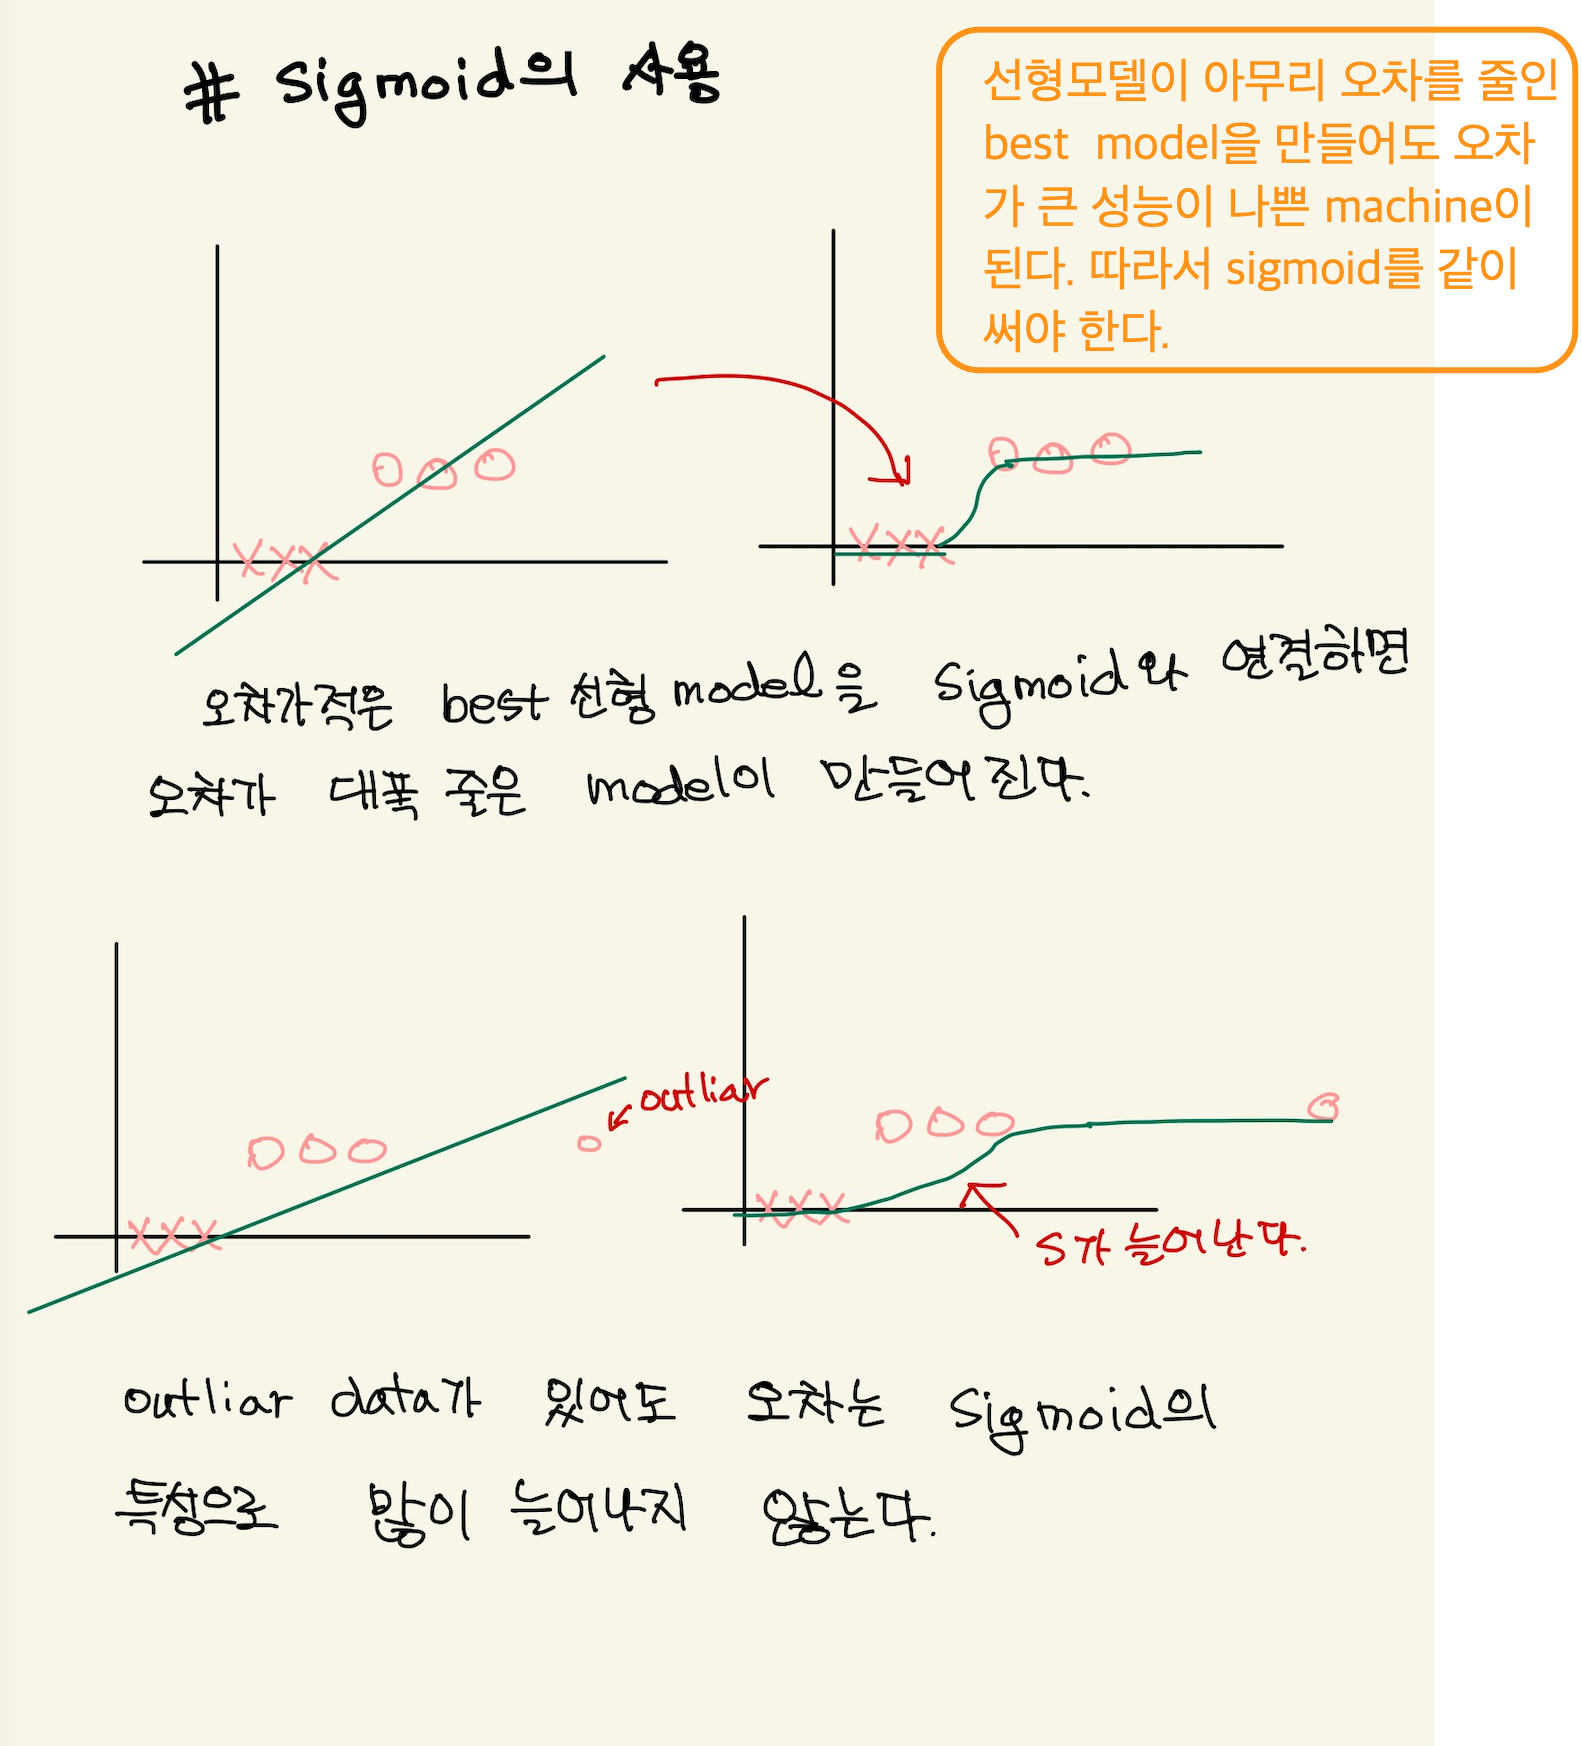 # Sigmoid의 사용
선형모델이 아무리 오차를 줄인
best model을 만들어도 오차
가 큰 성능이 나쁜 machine이
된다. 따라서 sigmoid를 같이
써야 한다.
오차가적은 best 선형 model을 Sigmoid와 연결하면
오차가 대폭 줄은 model이 만들어진다.
outliar
S가 늘어난다.
outliar data가 있어도 오차는 Sigmoid의
특성으로 많이 늘어나지 않는다.